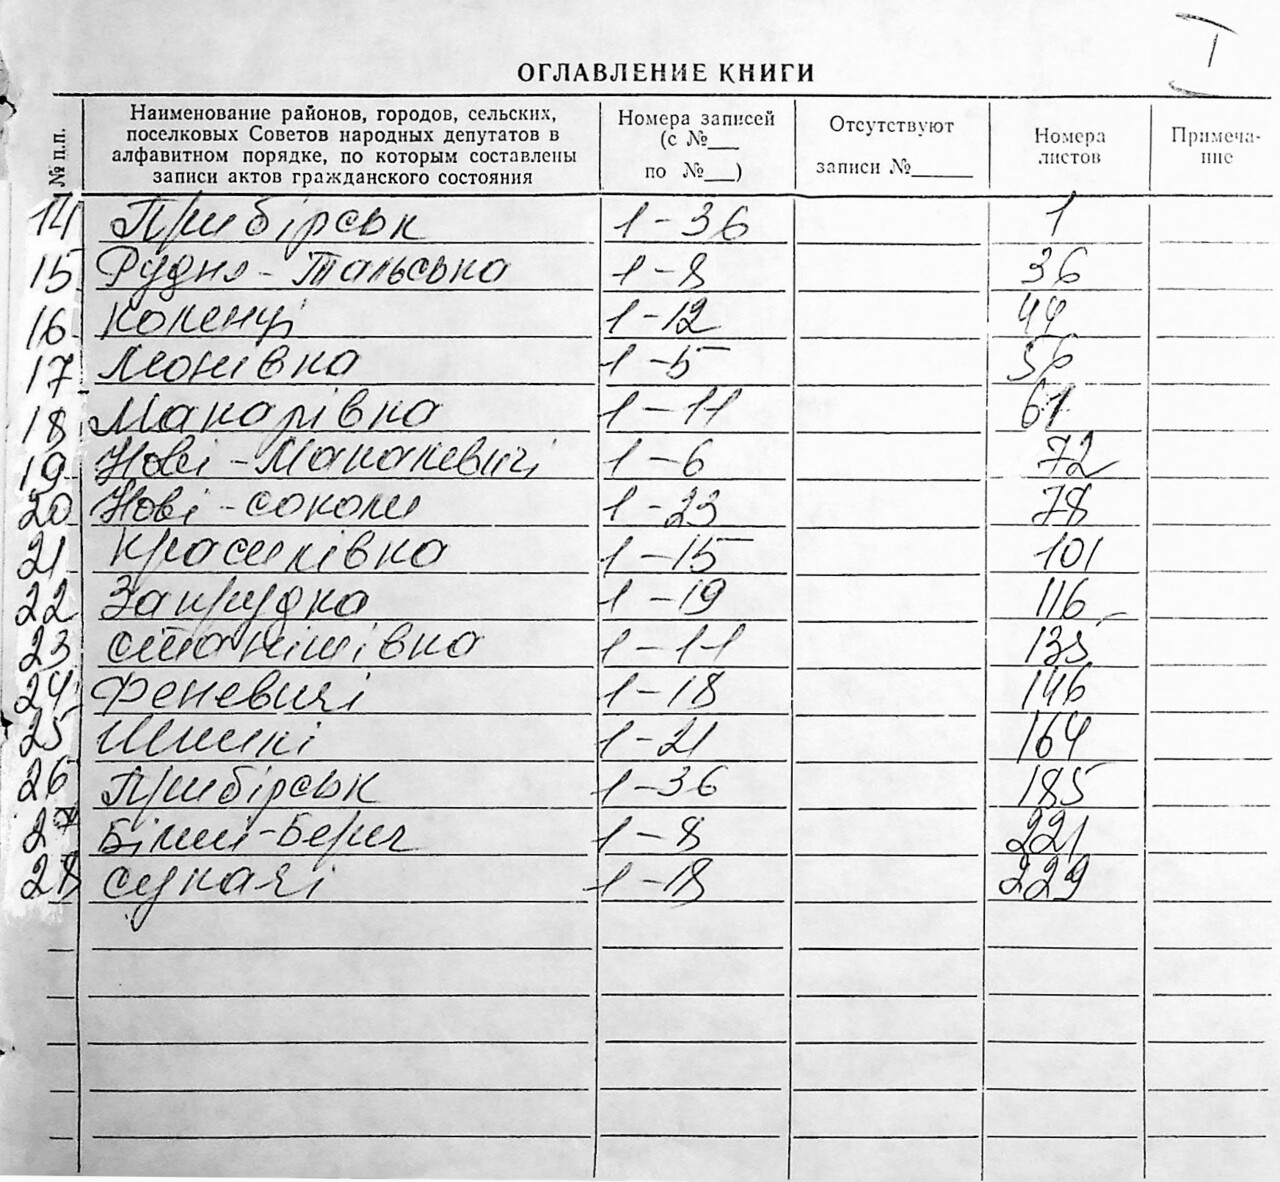 I
ОГЛАВЛЕНИЕ КНИГИ
№ п.п.
Наименование районов, городов, сельских,
поселковых Советов народных депутатов в
алфавитном порядке, по которым составлены
записи актов гражданского состояния
Номера записей
(с №___
по №___)
Отсутствуют
записи №______
Номера
листов
Примеча-
ние
14 Прибірськ 1-36 1
15 Рудня-Тальська 1-8 36
16 Коленці 1-12 44
17 Леонівка 1-5 56
18 Макарівка 1-11 61
19 Нові-Макалевичі 1-6 72
20 Нові-соколи 1-23 78
21 Красилівка 1-15 101
22 Запрудка 1-19 116
23 станішівка 1-11 135
24 Феневичі 1-18 146
25 Шпилі 1-21 164
26 Прибірськ 1-36 185
27 Білий-Берег 1-8 221
28 сукачі 1-18 229